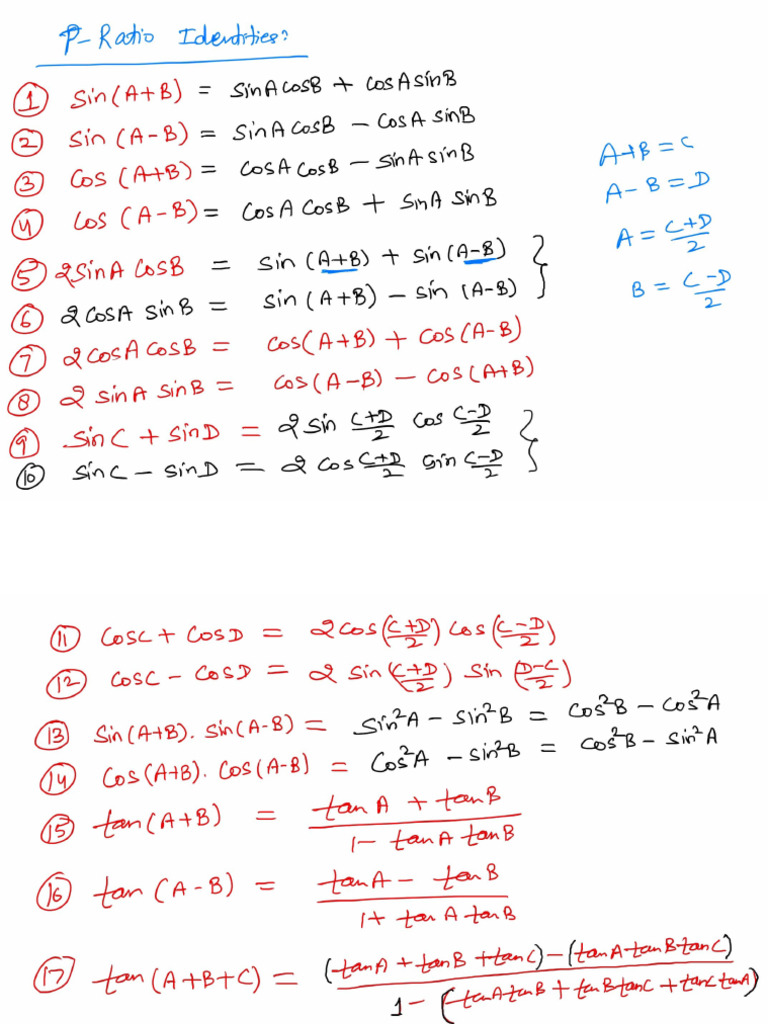 P-Ratio Identities:
① sin(A+B) = sinA cosB + cosA sinB
② sin(A-B) = sinA cosB - cosA sinB
③ cos(A+B) = cosA cosB - sinA sinB
④ cos(A-B) = cosA cosB + sinA sinB
A+B = C
A-B = D
A = C+D/2
B = C-D/2
⑤ 2sinA cosB = sin(A+B) + sin(A-B)
⑥ 2cosA sinB = sin(A+B) - sin(A-B)
⑦ 2cosA cosB = cos(A+B) + cos(A-B)
⑧ 2 sinA sinB = cos(A-B) - cos(A+B)
⑨ sinC + sinD = 2 sin C+D/2 cos C-D/2
⑩ sinC - sinD = 2 cos C+D/2 sin C-D/2
⑪ cosC + cosD = 2cos(C+D/2) cos(C-D/2)
⑫ cosC - cosD = 2 sin(C+D/2) sin(D-C/2)
⑬ sin(A+B). sin(A-B) = sin²A - sin²B = cos²B - cos²A
⑭ cos(A+B). cos(A-B) = cos²A - sin²B = cos²B - sin²A
⑮ tan(A+B) = tanA + tanB / 1 - tanA tanB
⑯ tan(A-B) = tanA - tanB / 1 + tanA tanB
⑰ tan(A+B+C) = (tanA + tanB + tanC) - (tanA tanB tanC) / 1 - (tanA tanB + tanB tanC + tanC tanA)